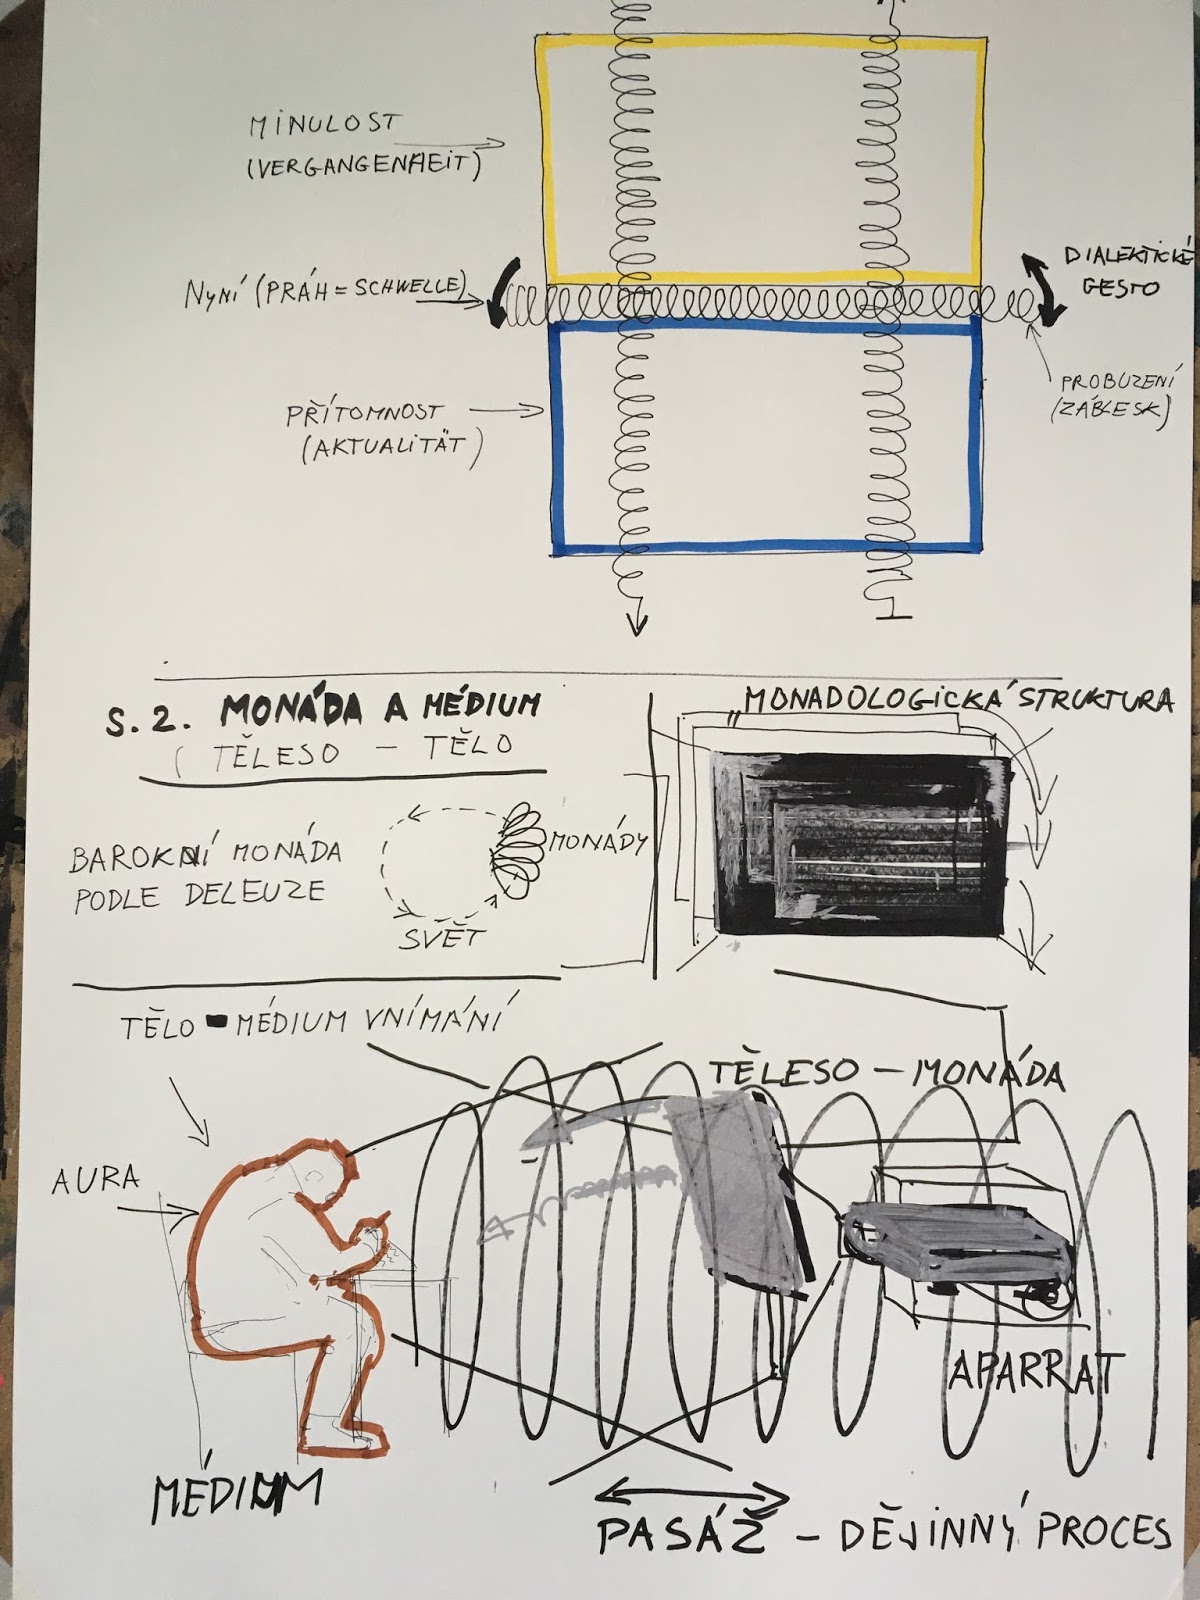 MINULOST
(VERGANGENHEIT)
NYNÍ (PRÁH = SCHWELLE)
DIALEKTICKÉ
GESTO
PROBUZENÍ
(ZÁBLESK)
PŘÍTOMNOST
(AKTUALITÄT)
S. 2. MONÁDA A MÉDIUM
( TĚLESO – TĚLO
MONADOLOGICKÁ STRUKTURA
BAROKNÍ MONÁDA
PODLE DELEUZE
MONÁDY
SVĚT
TĚLO - MÉDIUM VNÍMÁNÍ
TĚLESO – MONÁDA
AURA
APARRAT
MÉDIUM
PASÁŽ – DĚJINNÝ PROCES